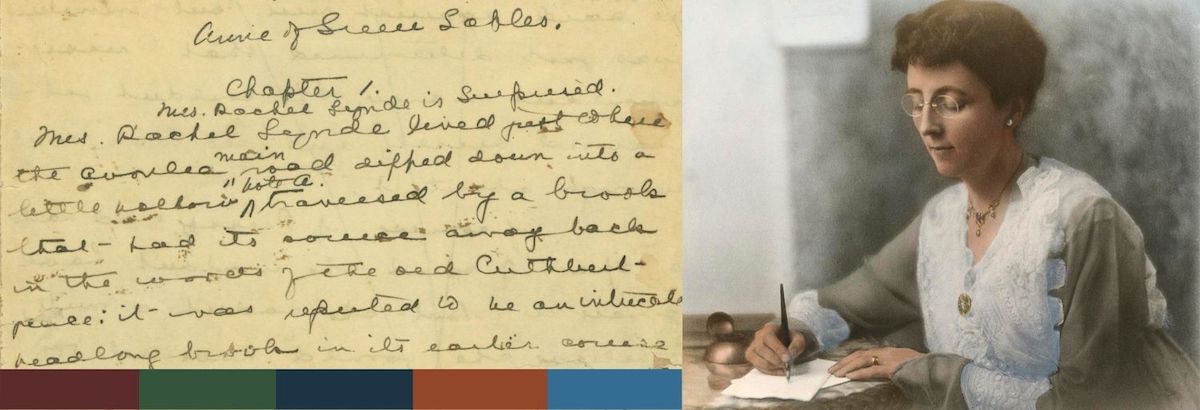 Anne of Green Gables.
Chapter 1.
Mrs. Rachel Lynde is Surprised.
Mrs. Rachel Lynde lived just where
main
the Avonlea road dipped down into a
"Note A.
little hollow traversed by a brook
that had its source away back
in the woods of the old Cuthbert
place; it was reputed to be an intricate
headlong brook in its earlier course